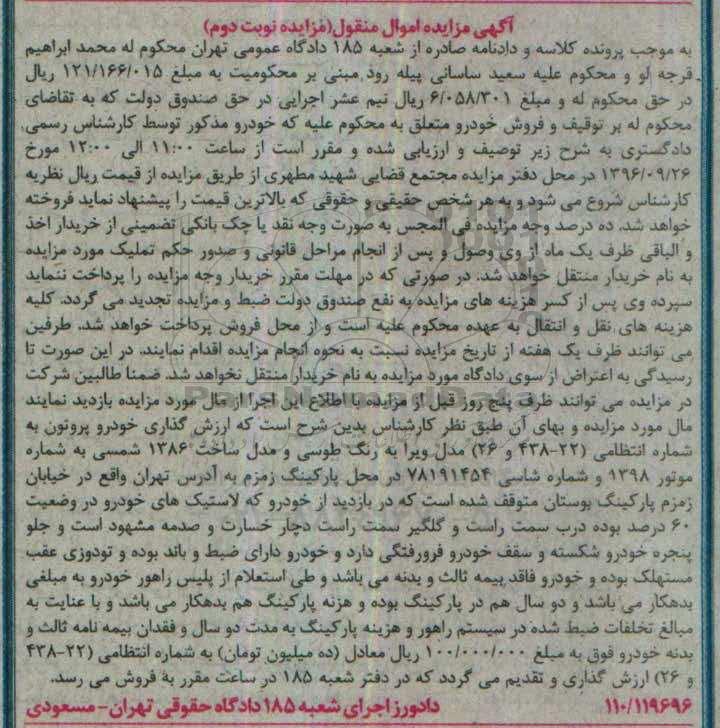 آگهی مزایده اموال منقول(مزایده نوبت دوم)
به موجب پرونده کلاسه و دادنامه صادره از شعبه ۱۸۵ دادگاه عمومی تهران محکوم له محمد ابراهیم
قرجه لو و محکوم علیه سعید ساسانی پیله رود مبنی بر محکومیت به مبلغ ۱۲۱/۱۶۶/۰۱۵ ریال
در حق محکوم له و مبلغ ۶/۰۵۸/۳۰۱ ریال نیم عشر اجرایی در حق صندوق دولت که به تقاضای
محکوم له بر توقیف و فروش خودرو متعلق به محکوم علیه که خودرو مذکور توسط کارشناس رسمی
دادگستری به شرح زیر توصیف و ارزیابی شده و مقرر است از ساعت ۱۱:۰۰ الی ۱۲:۰۰ مورخ
۱۳۹۶/۰۹/۲۶ در محل دفتر مزایده مجتمع قضایی شهید مطهری از طریق مزایده از قیمت ریال نظریه
کارشناس شروع می شود و به هر شخص حقیقی و حقوقی که بالاترین قیمت را پیشنهاد نماید فروخته
خواهد شد. ده درصد وجه مزایده فی المجس به صورت وجه نقد یا چک بانکی تضمینی از خریدار اخذ
و الباقی ظرف یک ماه از وی وصول و پس از انجام مراحل قانونی و صدور حکم تملیک مورد مزایده
به نام خریدار منتقل خواهد شد. در صورتی که در مهلت مقرر خریدار وجه مزایده را پرداخت ننماید
سپرده وی پس از کسر هزینه های مزایده به نفع صندوق دولت ضبط و مزایده تجدید می گردد. کلیه
هزینه های نقل و انتقال به عهده محکوم علیه است و از محل فروش پرداخت خواهد شد. طرفین
می توانند ظرف یک هفته از تاریخ مزایده نسبت به نحوه انجام مزایده اقدام نمایند. در این صورت تا
رسیدگی به اعتراض از سوی دادگاه مورد مزایده به نام خریدار منتقل نخواهد شد. ضمنا طالبین شرکت
در مزایده می توانند ظرف پنج روز قبل از مزایده با اطلاع این اجرا از مال مورد مزایده بازدید نمایند
مال مورد مزایده و بهای آن طبق نظر کارشناس بدین شرح است که ارزش گذاری خودرو پروتون به
شماره انتظامی (۲۲-۴۳۸ و ۲۶) مدل ویرا به رنگ طوسی و مدل ساخت ۱۳۸۶ شمسی به شماره
موتور ۱۳۹۸ و شماره شاسی ۷۸۱۹۱۴۵۴ در محل پارکینگ زمزم به آدرس تهران واقع در خیابان
زمزم پارکینگ بوستان متوقف شده است که در بازدید از خودرو که لاستیک های خودرو در وضعیت
۶۰ درصد بوده درب سمت راست و گلگیر سمت راست دچار خسارت و صدمه مشهود است و جلو
پنجره خودرو شکسته و سقف خودرو فرورفتگی دارد و خودرو دارای ضبط و باند بوده و تودوزی عقب
مستهلک بوده و خودرو فاقد بیمه ثالث و بدنه می باشد و طی استعلام از پلیس راهور خودرو به مبلغی
بدهکار می باشد و دو سال هم در پارکینگ بوده و هزنه پارکینگ هم بدهکار می باشد و با عنایت به
مبالغ تخلفات ضبط شده در سیستم راهور و هزینه پارکینگ به مدت دو سال و فقدان بیمه نامه ثالث و
بدنه خودرو فوق به مبلغ ۱۰۰/۰۰۰/۰۰۰ ریال معادل (ده میلیون تومان) به شماره انتظامی (۲۲-۴۳۸
و ۲۶) ارزش گذاری و تقدیم می گردد که در دفتر شعبه ۱۸۵ در ساعت مقرر به فروش می رسد.
۱۱۰/۱۱۹۶۹۶ دادورز اجرای شعبه ۱۸۵ دادگاه حقوقی تهران - مسعودی